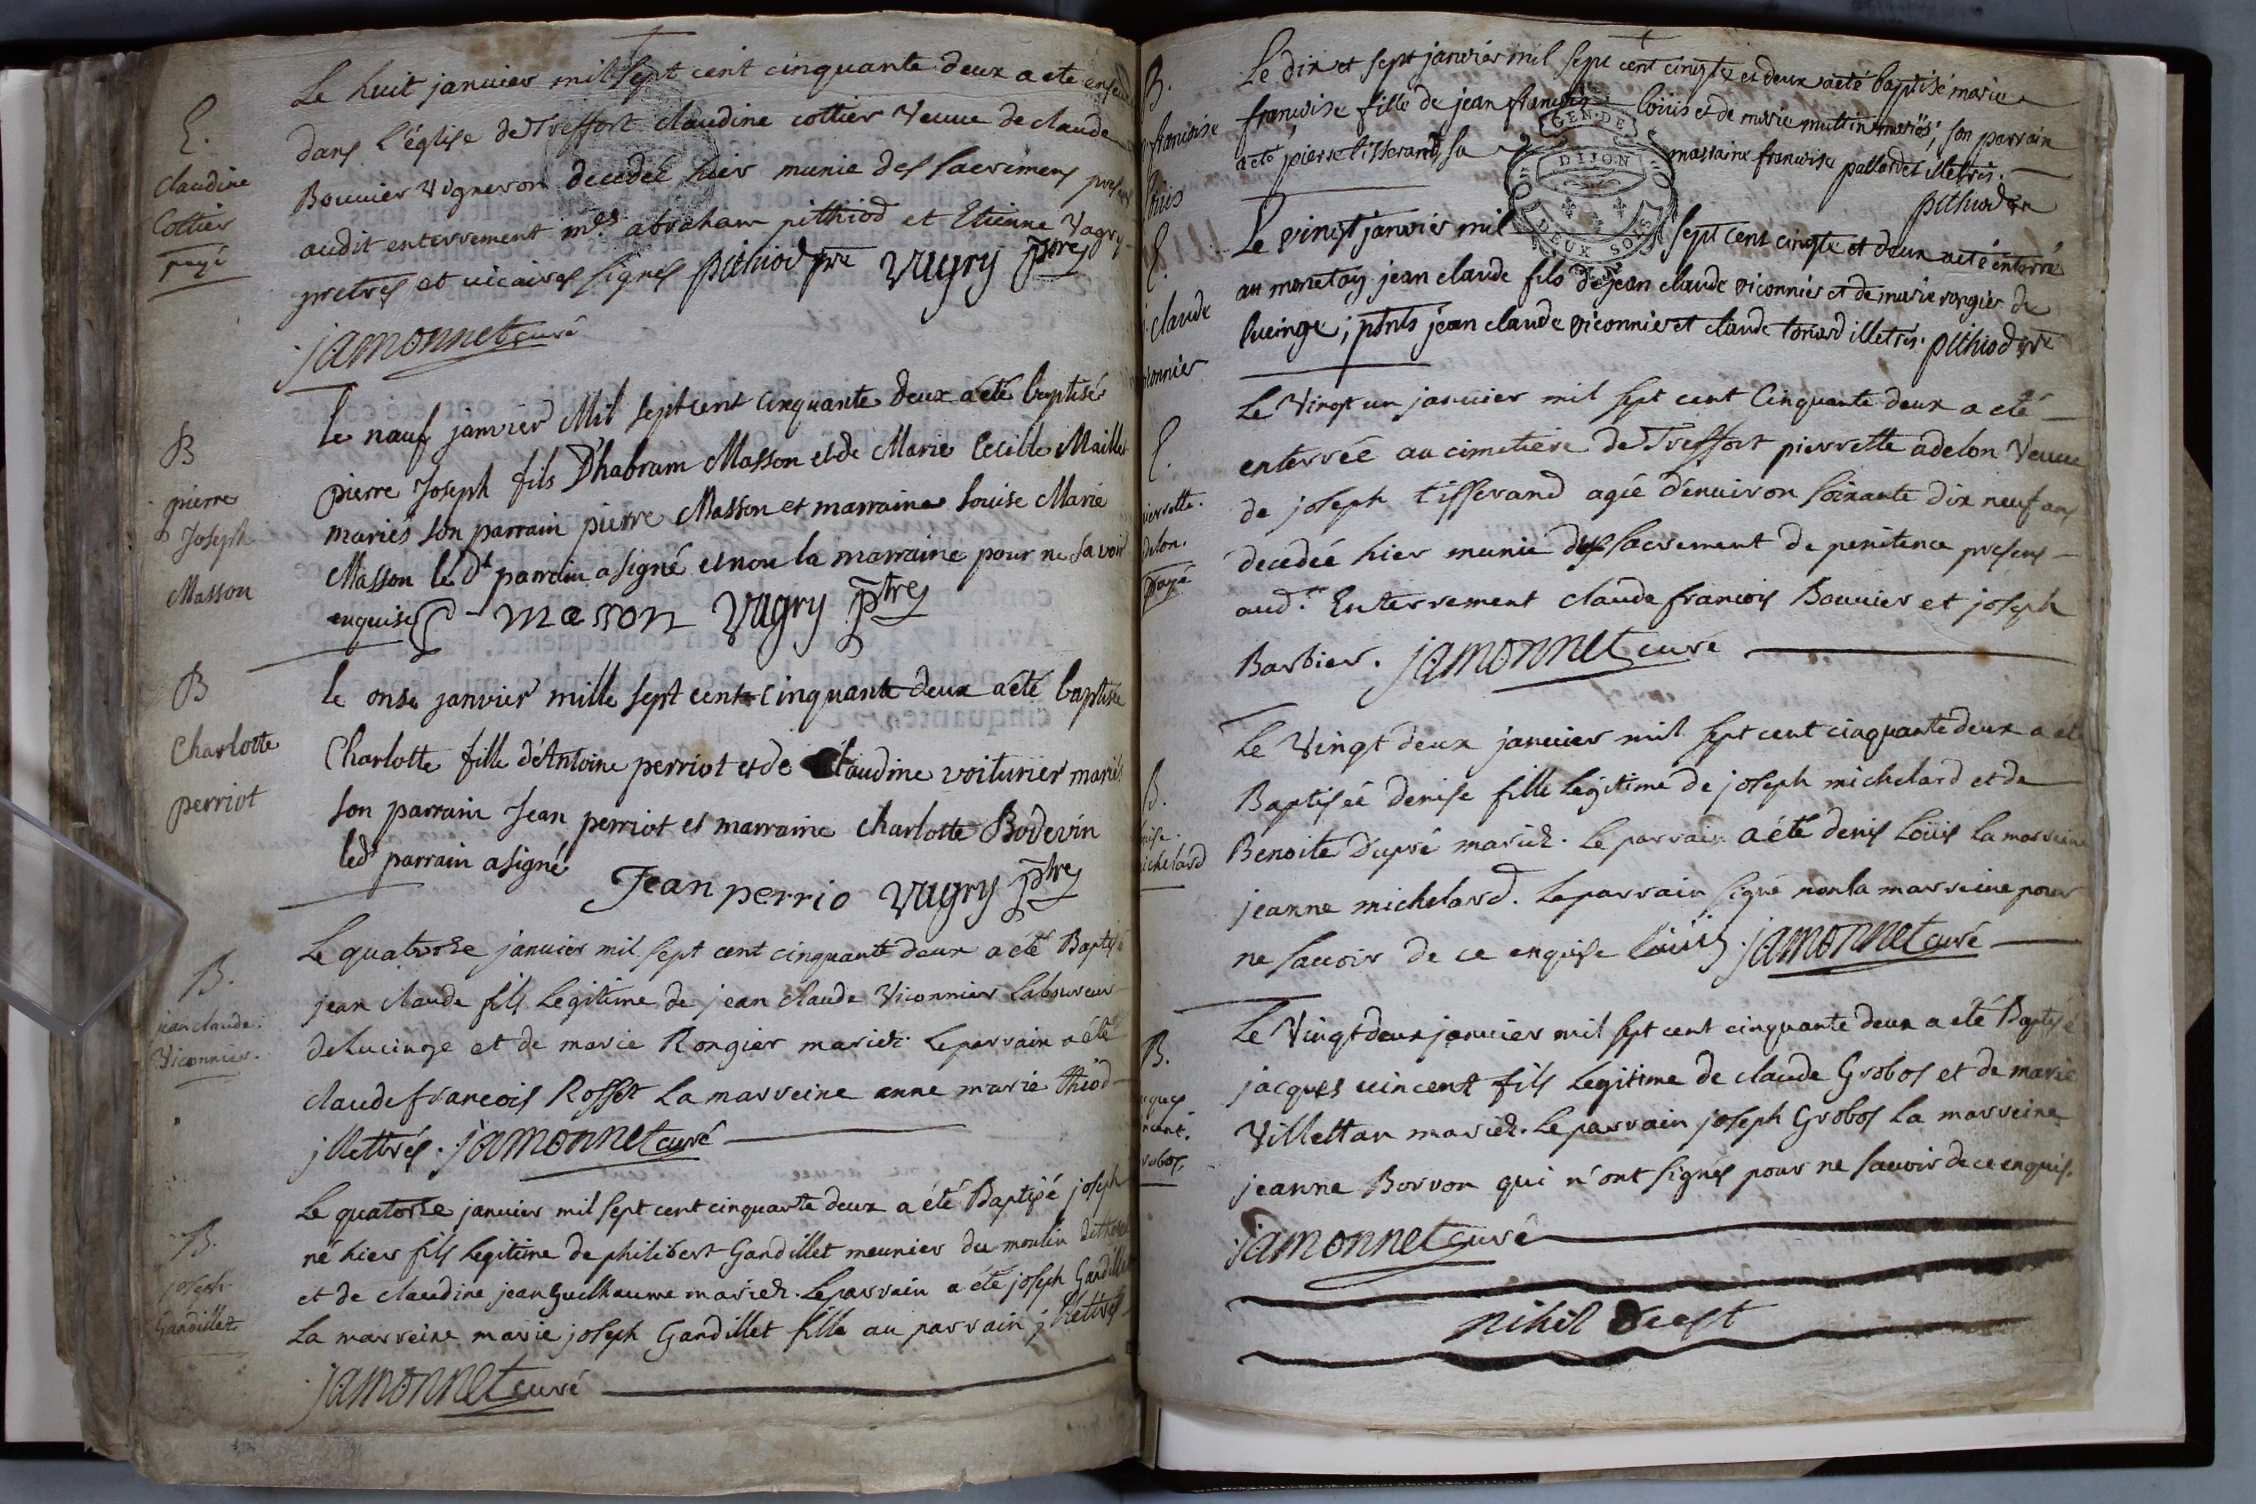 E.
Claudine
Cottier
payé
Le huit januier mil sept cent cinquante deux a ete
dans l'église de Treffort claudine cottier Veuue de claude
Bouuier Vigneron decedeé hier munie des sacremens
audit enterrement mes abraham pithiod et Etienne Vagry
pretres et uicaires signes pithiod pre Vugry ptre
jamonnet curé
B
pierre
Joseph
Masson
le neuf janvier Mil sept cent cinquante deux a été baptisé
pierre Joseph fils D'habram Masson et de Marie Cecille
mariés son parrain pierre Masson et marraine Louise Marie
Masson led.t parrain a signé et non la marraine pour ne savoir
enquise masson Vugry ptre
B
Charlotte
perriot
le onse janvier mille sept cent cinquante deux a été baptisée
Charlotte fille d'Antoine perriot et de Claudine voiturier mariés
son parrain Jean perriot et marraine charlotte Bodevin
led.t parrain a signé
Jean perrio Vugry ptre
B.
jean claude
Viconnier.
Le quatorze januier mil sept cent cinquante deux a été Baptisé
jean claude fils legitime de jean claude Viconnier laboureur
de lucinge et de marie Rongier mariez. Le parrain a été
claude francois Rosset la marreine anne marie thiod
jllettrés. jamonnet curé
B.
joseph
Gandillet
Le quatorze januier mil sept cent cinquante deux a été Baptisé joseph
né hier fils legitime de philibert Gandillet meunier du moulin
et de claudine jean Guilhaume mariez. Le parrain a été joseph
La marreine marie joseph Gandillet fille au parrain jllettrés
jamonnet curé
B.
francoise
Louis
Le dix et sept janvier mil sept cent cinqte et deux a eté baptisé marie
francoise fille de jean francois louis et de marie muttin mariés; son parrain
a été pierre tisserand, sa marraine francoise pallordet illetrés.
pithiod pre
E.
claude
Le vingt janvier mil sept cent cinqte et deux a eté enterré
au monetay jean claude fils de jean claude viconnier et de marie rongier de
lucinge; pnts jean claude viconnier et claude tonard illetrés. pithiod pre
E.
payé
Le Vingt un januier mil sept cent Cinquante deux a eté
enterreé au cimetiere de Treffort pierrette adelon Veuue
de joseph tisserand agée d'enuiron soixante dix neuf ans
decedeé hier munie des sacrement de penitence presens
aud.t Enterrement claude francois Bouuier et joseph
Barbier. jamonnet curé
B.
Le Vingt deux januier mil sept cent cinquante deux a été
Baptiseé denise fille legitime de joseph michelard et de
Benoite Dupré mariez. Le parrain a été denis Loüis la marreine
jeanne michelard. Le parrain signé non la marreine pour
ne sauoir de ce enquise Loüis. jamonnet curé
B.
Le Vingt deux januier mil sept cent cinquante deux a été Baptisé
jacques uincent fils legitime de claude Grobos et de marie
Villettan mariez. Le parrain joseph Grobos la marreine
jeanne Borron qui n'ont signés pour ne sauoir de ce enquis.
jamonnet curé
nihil deest
GEN. DE
DIJON
DEUX SOLS